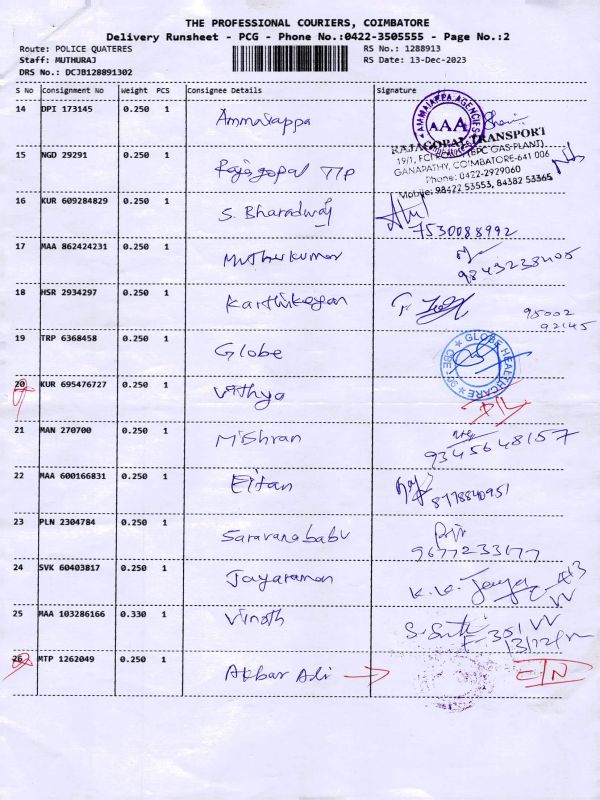 THE PROFESSIONAL COURIERS, COIMBATORE
Delivery Runsheet - PCG - Phone No.:0422-3505555 - Page No.:2
Route: POLICE QUATERES
RS No.: 1288913
Staff: MUTHURAJ
RS Date: 13-Dec-2023
DRS No.: DCJB128891302
S No Consignment No Weight PCS Consignee Details Signature
14 DPI 173145 0.250 1 Ammaiappa
AMMAIAPPA AGENCIES
AAA
RAJAGOPAL TRANSPORT
15 NGD 29291 0.250 1 Rajagopal T/P
GANAPATHY, COIMBATORE-641 006
Phone: 0422-2929060
Mobile: 98422 53553, 84382 53365
16 KUR 609284829 0.250 1 S. Bharadwaj
7530088992
17 MAA 862424231 0.250 1 Muthukumar
9843238405
18 HSR 2934297 0.250 1 Karthikeyan
95002
92145
19 TRP 6368458 0.250 1 Globe
GLOBE HEALTHCARE
CBE 06
20 KUR 695476727 0.250 1 Vithya
21 MAN 270700 0.250 1 Mithran
9345648157
22 MAA 600166831 0.250 1 Eitan
8778840951
23 PLN 2304784 0.250 1 Saravanababu
9677233177
24 SVK 60403817 0.250 1 Jayaraman
K. V. Jaya
25 MAA 103286166 0.330 1 Vinoth
26 MTP 1262049 0.250 1 Akbar Ali